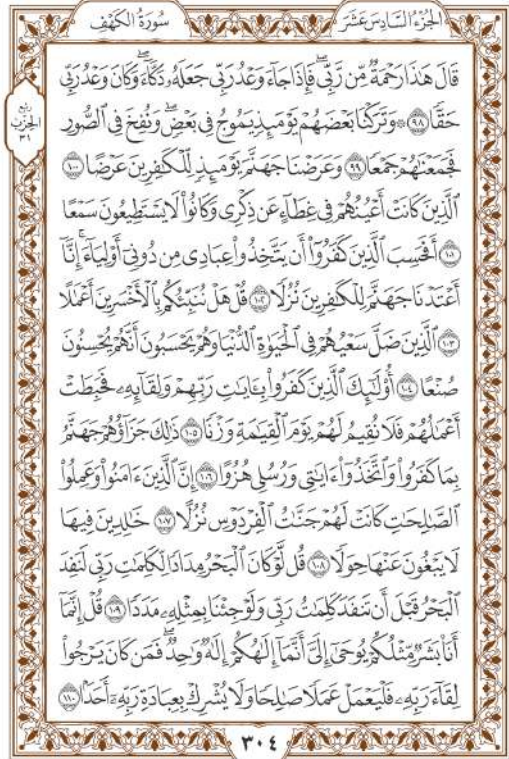 الجُزْءُ السَّادِسَ عَشَرَ
سُورَةُ الكَهْفِ
قَالَ هَٰذَا رَحْمَةٌ مِّن رَّبِّيۖ فَإِذَا جَآءَ وَعْدُ رَبِّي جَعَلَهُۥ دَكَّآءَۖ وَكَانَ وَعْدُ رَبِّي
حَقًّا ٩٨ ۞ وَتَرَكْنَا بَعْضَهُمْ يَوْمَئِذٍ يَمُوجُ فِي بَعْضٖۖ وَنُفِخَ فِي ٱلصُّورِ
فَجَمَعْنَٰهُمْ جَمْعًا ٩٩ وَعَرَضْنَا جَهَنَّمَ يَوْمَئِذٍ لِّلْكَٰفِرِينَ عَرْضًا ١٠٠
ٱلَّذِينَ كَانَتْ أَعْيُنُهُمْ فِي غِطَآءٍ عَن ذِكْرِي وَكَانُوا۟ لَا يَسْتَطِيعُونَ سَمْعًا
١٠١ أَفَحَسِبَ ٱلَّذِينَ كَفَرُوٓا۟ أَن يَتَّخِذُوا۟ عِبَادِي مِن دُونِيٓ أَوْلِيَآءَۚ إِنَّآ
أَعْتَدْنَا جَهَنَّمَ لِلْكَٰفِرِينَ نُزُلًا ١٠٢ قُلْ هَلْ نُنَبِّئُكُم بِٱلْأَخْسَرِينَ أَعْمَٰلًا
١٠٣ ٱلَّذِينَ ضَلَّ سَعْيُهُمْ فِي ٱلْحَيَوٰةِ ٱلدُّنْيَا وَهُمْ يَحْسَبُونَ أَنَّهُمْ يُحْسِنُونَ
صُنْعًا ١٠٤ أُو۟لَٰٓئِكَ ٱلَّذِينَ كَفَرُوا۟ بِـَٔايَٰتِ رَبِّهِمْ وَلِقَآئِهِۦ فَحَبِطَتْ
أَعْمَٰلُهُمْ فَلَا نُقِيمُ لَهُمْ يَوْمَ ٱلْقِيَٰمَةِ وَزْنًا ١٠٥ ذَٰلِكَ جَزَآؤُهُمْ جَهَنَّمُ
بِمَا كَفَرُوا۟ وَٱتَّخَذُوٓا۟ ءَايَٰتِي وَرُسُلِي هُزُوًا ١٠٦ إِنَّ ٱلَّذِينَ ءَامَنُوا۟ وَعَمِلُوا۟
ٱلصَّٰلِحَٰتِ كَانَتْ لَهُمْ جَنَّٰتُ ٱلْفِرْدَوْسِ نُزُلًا ١٠٧ خَٰلِدِينَ فِيهَا
لَا يَبْغُونَ عَنْهَا حِوَلًا ١٠٨ قُل لَّوْ كَانَ ٱلْبَحْرُ مِدَادًا لِّكَلِمَٰتِ رَبِّي لَنَفِدَ
ٱلْبَحْرُ قَبْلَ أَن تَنفَدَ كَلِمَٰتُ رَبِّي وَلَوْ جِئْنَا بِمِثْلِهِۦ مَدَدًا ١٠٩ قُلْ إِنَّمَآ
أَنَا۠ بَشَرٌ مِّثْلُكُمْ يُوحَىٰٓ إِلَيَّ أَنَّمَآ إِلَٰهُكُمْ إِلَٰهٌ وَٰحِدٌۖ فَمَن كَانَ يَرْجُوا۟
لِقَآءَ رَبِّهِۦ فَلْيَعْمَلْ عَمَلًا صَٰلِحًا وَلَا يُشْرِكْ بِعِبَادَةِ رَبِّهِۦٓ أَحَدًۢا ١١٠
ربع
الحزب
٣١
٣٠٤